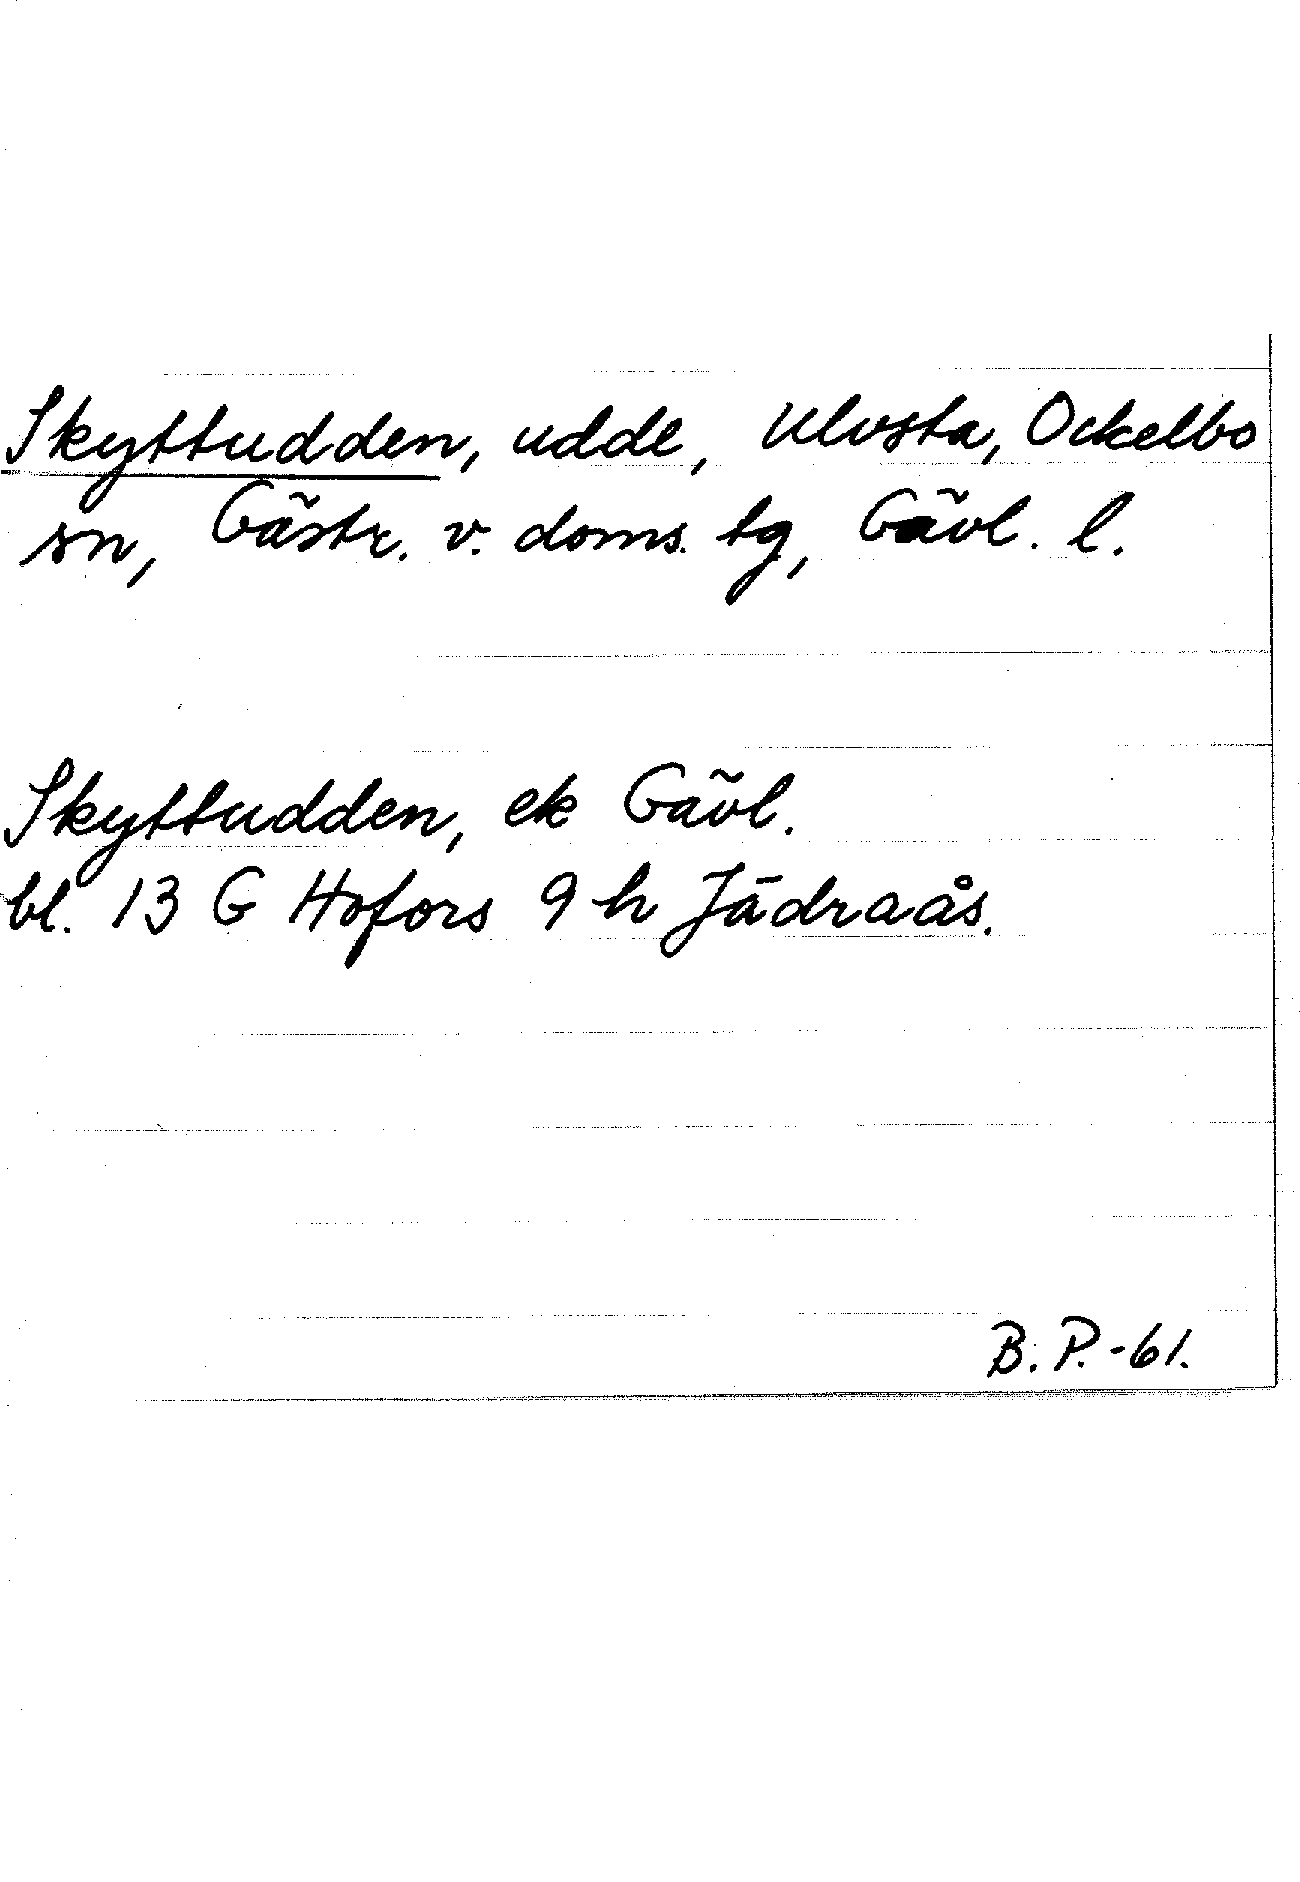 Skyttudden, udde, Ulvsta, Ockelbo
sn, Gästr. v. doms. tg, Gävl. l.
Skyttudden, ek Gävl.
bl. 13 G Hofors 9 h Jädraås.
B.P.-61.